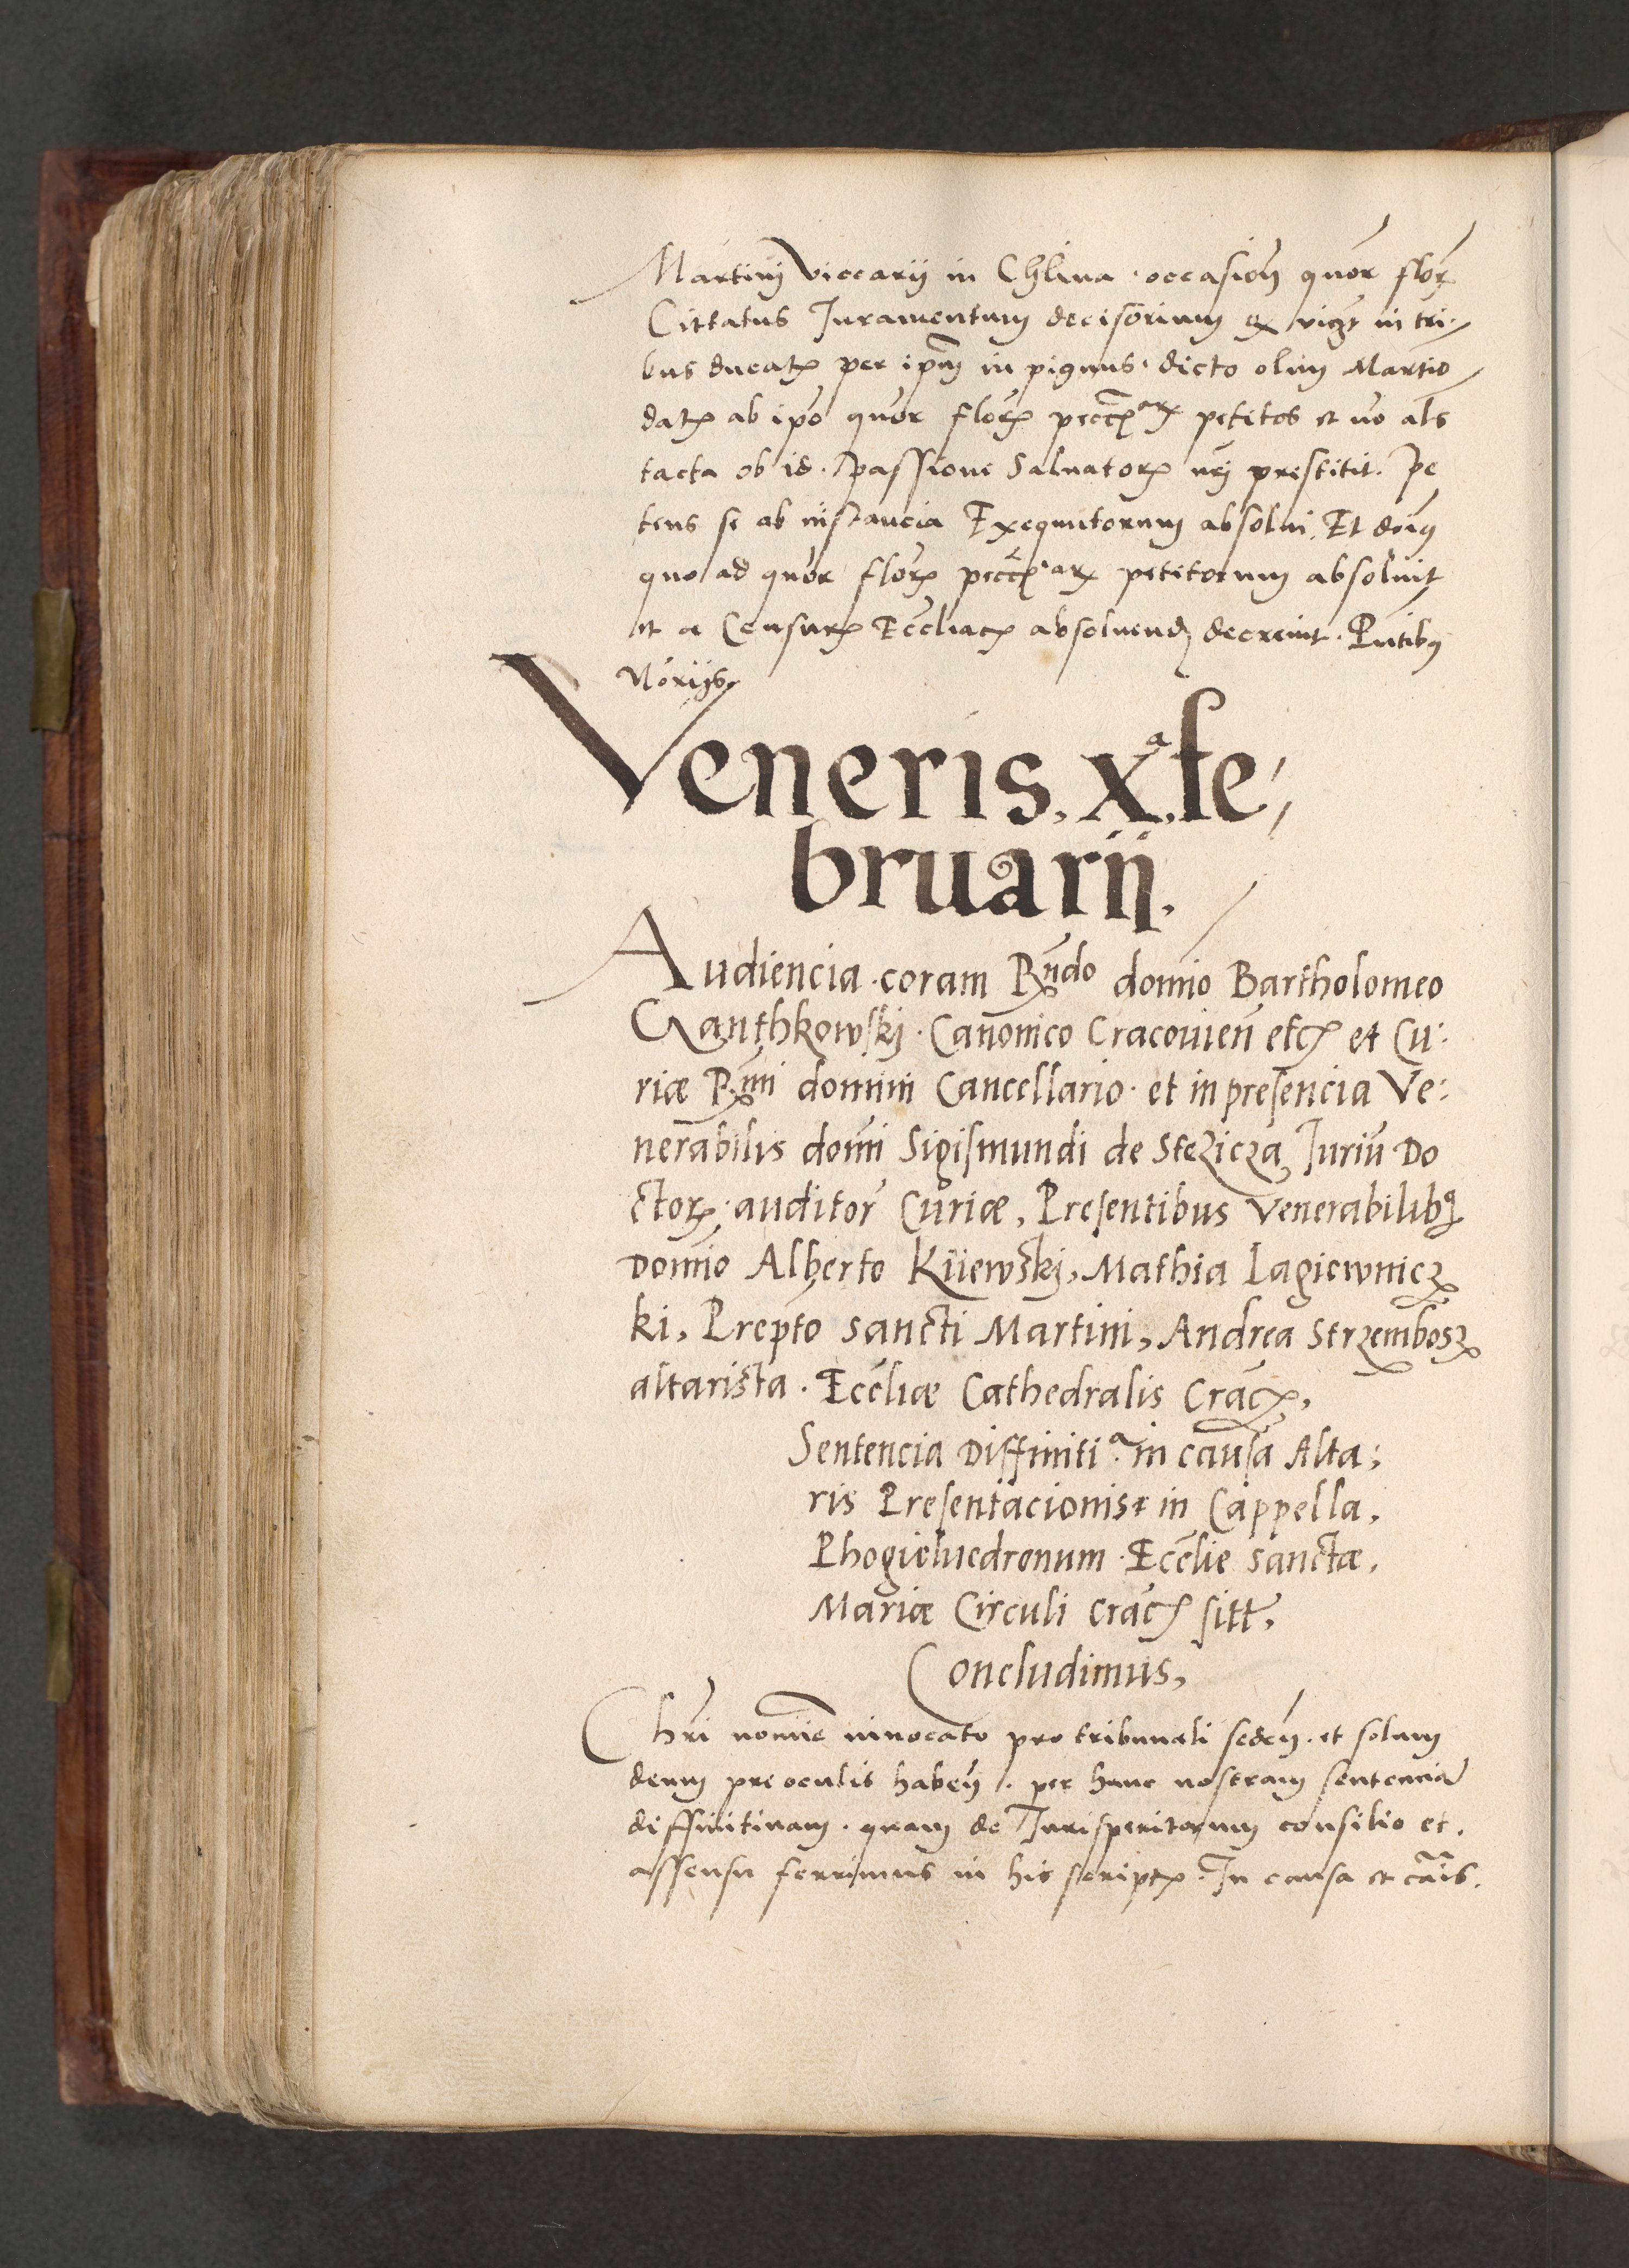 Martini viccarii in Chlina · occasioñ quor̃ flor̃
Cittatus Juramentum decisorium in tri-
bus ducatꝝ per ipm̃ in pignus · dicto olim Martio
datꝝ ab ipõ quor̃ florꝝ petitos et nõ als
tacta ob id · passione Saluatorꝝ nrj prestitit. Pe
tens se ab instancia Exequutorum absolui. Et dñus
quo ad quor̃ florꝝ petitorum absoluit
et a Censurꝝ Eccl̃iacꝝ absoluendũ decreuit. Pñtibus
Nõriis
Veneris, xᵃ. fe,
bruarij.
Audiencia · coram Rn̄do domĩo Bartholomeo
Ganthkowskij · Canonico Cracouieñ etcꝝ et Cu-
riæ Rm̄i domini Cancellario · et in presencia Ve-
nerabilis domĩ Sigismundi de Stezicza Juriũ Do
ctorꝝ · auditor̃ Curiæ, Presentibus Venerabilibꝰ
Domĩo Alberto Kijewskj, Mathia Lagiewnicz
ki, Prepto sancti Martini, Andrea Strzembosz
altarista · Eccl̃iæ Cathedralis Cracꝝ,
Sentencia Diffinitiᵃ · in causa Alta-
ris Presentacionis in Cappella,
Phogiehvedronum · Eccl̃ie sanctæ,
Mariæ Circuli Cracꝝ sitt̃,
Concludimus,
Chr̃i nomĩe inuocato pro tribunali sedeñ · et solum
deum pre oculis habeñ · per hanc nostram sentenciã
diffinitiuam · quam de Jurisperitorum consilio et ·
assensu ferrimus in his scriptꝝ · In causa et cãis ·